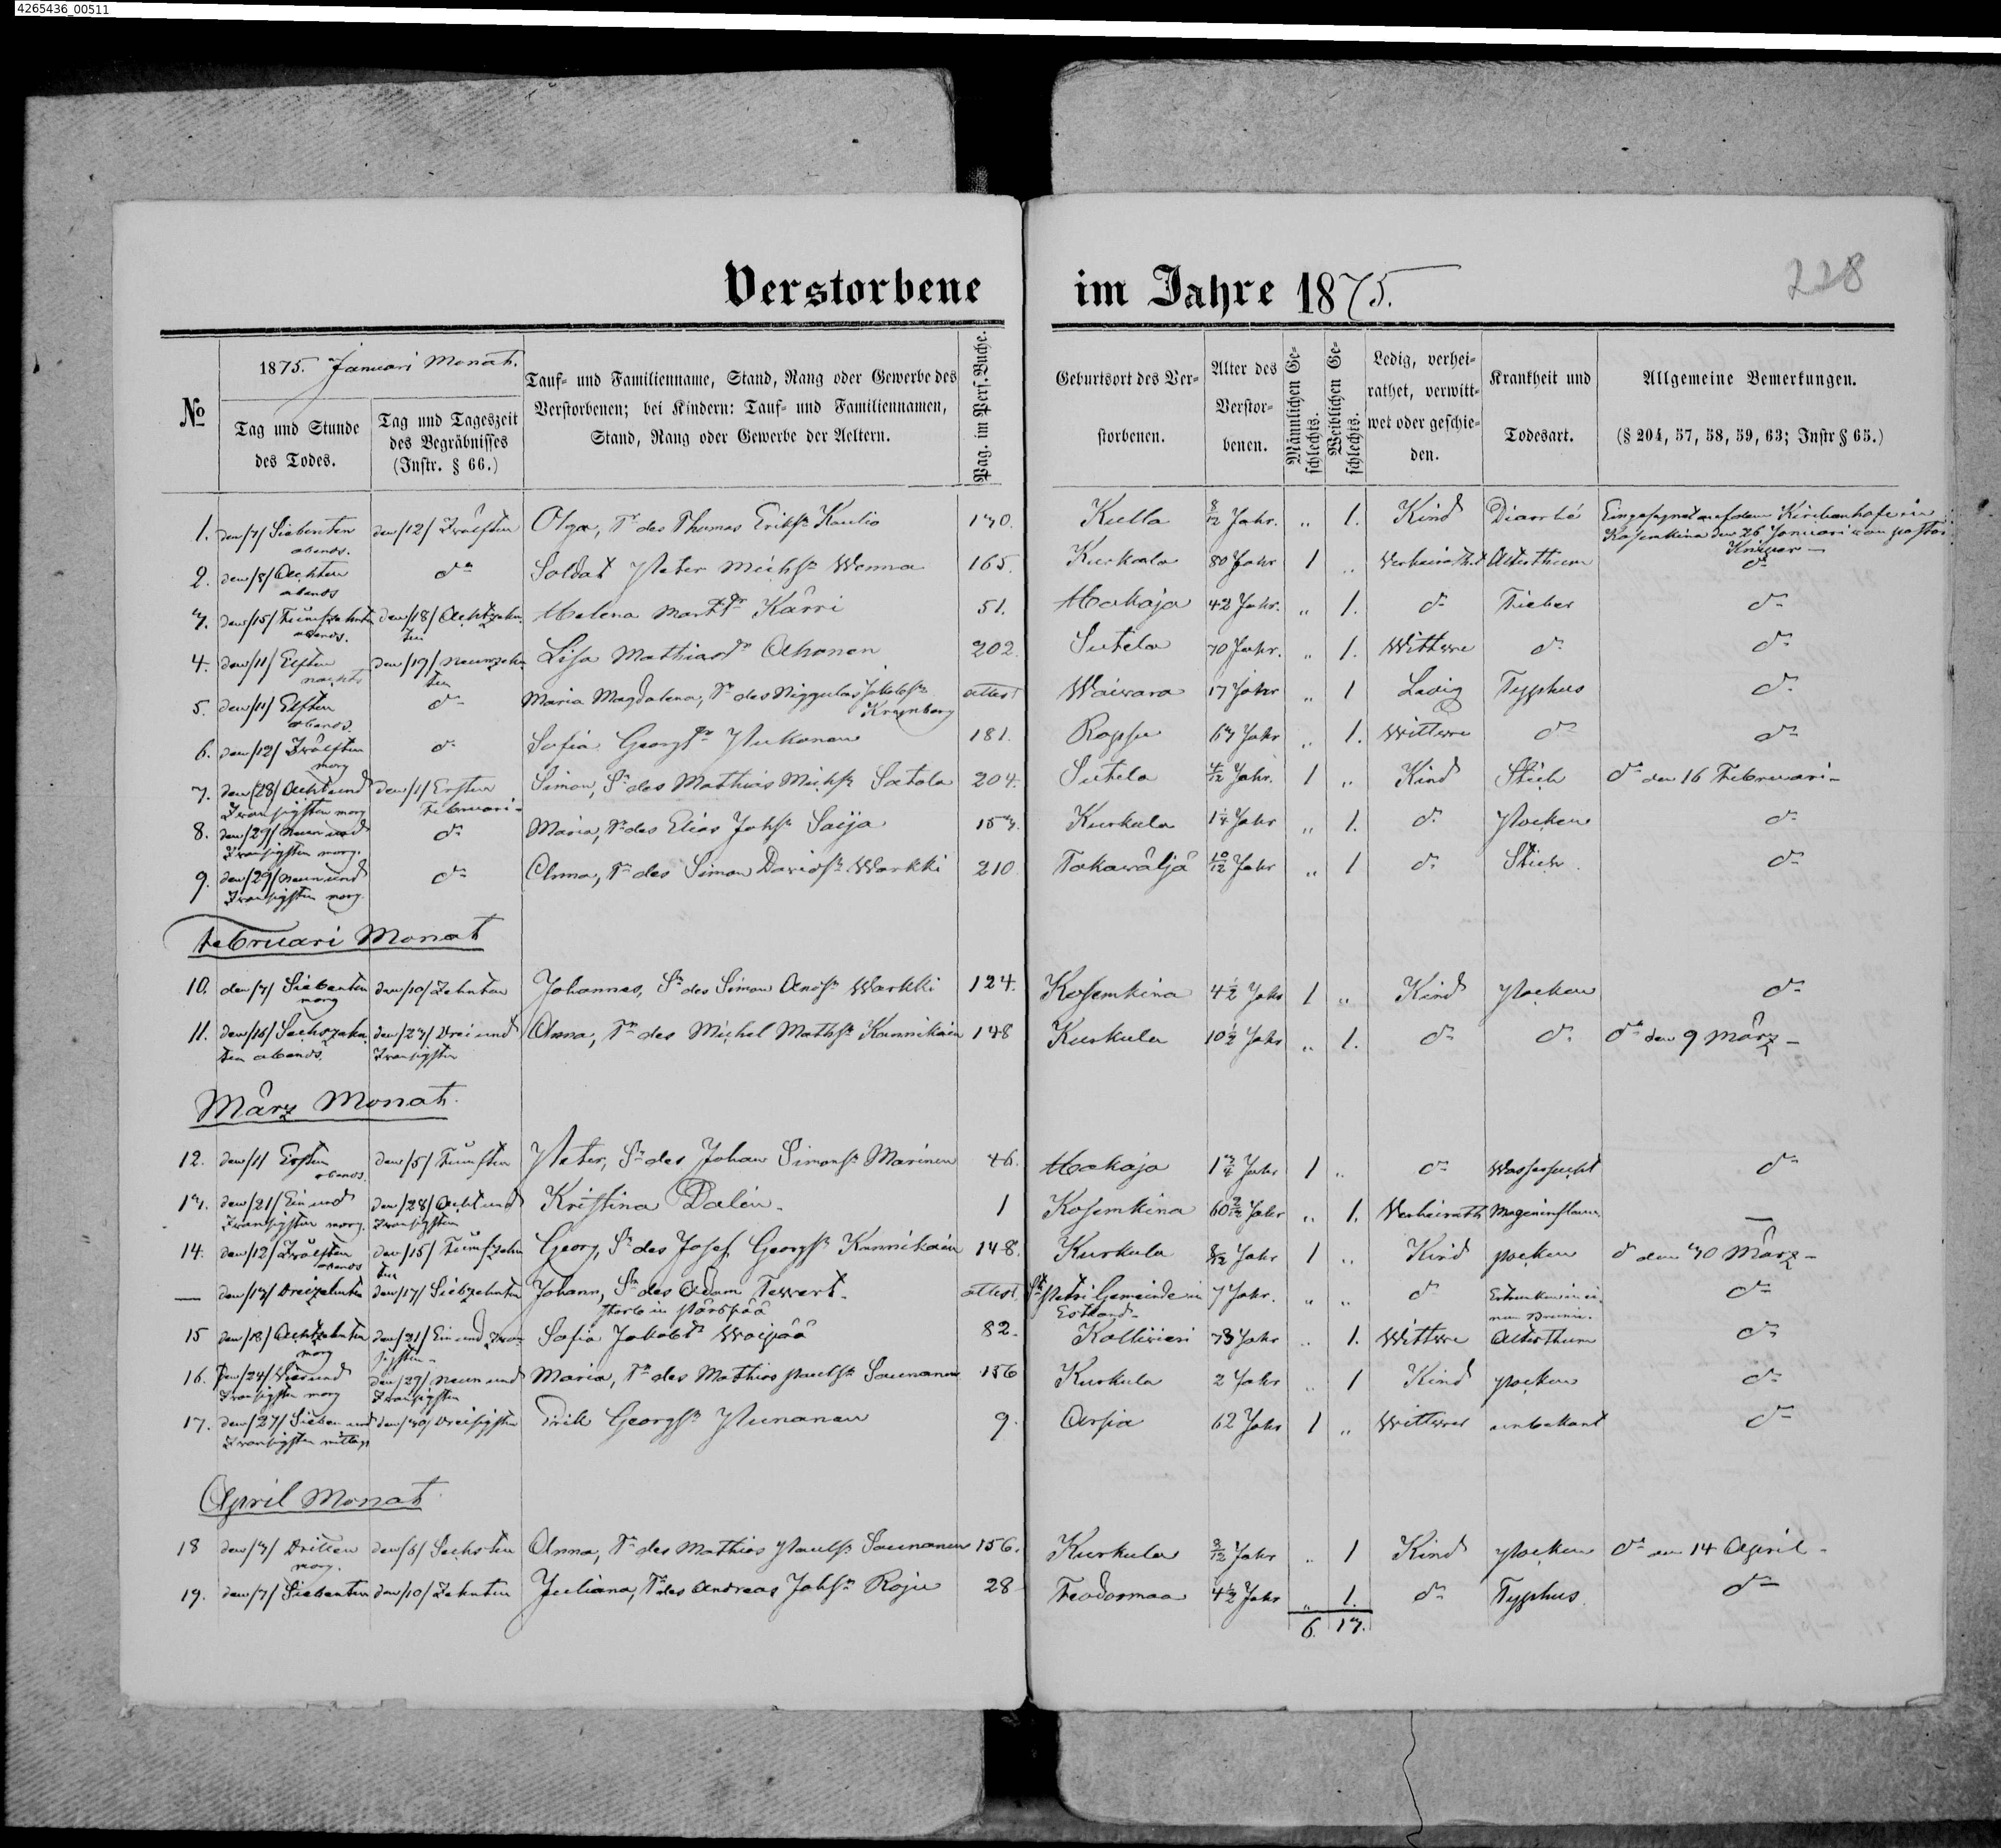 4265436_00511
228
Verstorbene im Jahre 1875.
№
1875. Januari Monat.
Tag und Stunde des Todes.
Tag und Tageszeit des Begräbnisses (Instr. § 66.)
Tauf- und Familienname, Stand, Rang oder Gewerbe des Verstorbenen; bei Kindern: Tauf- und Familiennamen, Stand, Rang oder Gewerbe der Aeltern.
Pag. im Pers. Buche.
Geburtsort des Verstorbenen.
Alter des Verstorbenen.
Männlichen Geschlechts.
Weiblichen Geschlechts.
Ledig, verheirathet, verwittwet oder geschieden.
Krankheit und Todesart.
Allgemeine Bemerkungen. (§ 204, 57, 58, 59, 63; Instr § 65.)
1. den /7/ Siebenten abends. den /12/ Zwölften Olga, Tr des Thomas Erikss. Kaulio 130. Kulla 8/12 Jahr. „ 1. Kind Diarrhé Eingesegnet auf dem Kirchenhofe in Kosemkina den 26 Januari von pastor
2. den /8/ Achten abends do Soldat Peter Michss. Wanna 165. Kurkula 80 Jahr 1 „ Verheirathet Alterthum do
3. den /15/ Fünfzehnten abends. den /18/ Achtzehnten Helena Martdr Kärri 51. Hakaja 42 Jahr. „ 1. do Fieber do
4. den /11/ Elften nachts den /19/ Neunzehnten Lisa Mathiasdr Ahonen 202. Sutela 70 Jahr. „ 1. Wittwe do do
5. den /11/ Elften abends. do Maria Magdalena, Tr des Niggulas Jakobss. attest Waiwara 17 Jahr „ 1 Ledig Typhus do
6. den /12/ Zwölften morg do Sofia Georgdr Pukonen 181. Roppu 63 Jahr „ 1. Wittwe do do
7. den /28/ Achtund Zwanzigsten morg den /1/ Ersten Februari Simon, Sn des Mathias Michss. Satala 204. Sutela 4/12 Jahr. 1 „ Kind Stich do den 16 Februari
8. den /29/ Neun und Zwanzigsten morg. do Maria, Tr des Elias Johss. Saija 153. Kurkula 1 1/4 Jahr „ 1. do Pocken do
9. den /29/ Neun und Zwanzigsten morg. do Anna, Tr des Simon Davidss. Warkki 210 Takawäljä 10/12 Jahr „ 1 do Stich do
Februari Monat
10. den /7/ Siebenten morg den /10/ Zehnten Johannes, Sn des Simon Andss. Warkki 124. Kosemkina 4 1/2 Jahr 1 „ Kind Pocken do
11. den /16/ Sechszehnten abends. den /23/ Drei und Zwanzigsten Anna, Tr des Michel Mathss. Kunnikain 148 Kurkula 10 1/2 Jahr „ 1. do do do den 9 März
März Monat
12. den /1/ Ersten abends. den /5/ Fünften Peter, Sn des Johan Simonss. Marinen 46. Hakaja 1 3/4 Jahr 1 „ do Wassersucht do
13. den /21/ Ein und Zwanzigsten morg. den /28/ Acht und Zwanzigsten Kristina Dalin. 1 Kosemkina 60 2/12 Jahr „ 1. Verheirath Mageninflam. —
14. den /12/ Zwölften abends den /15/ Fünfzehnten Georg, Sn des Josef Georgss. Kunnikain 148. Kurkula 8/12 Jahr 1 „ Kind pocken do den 30 März
— den /13/ Dreizehnten den /17/ Siebzehnten Johann, Sn des Adam Tewert. starb in Pärspää attest. St Petri Gemeinde in Estland 7 Jahr. „ „ do Ertrunken in einem Brunn. do
15 den /18/ Achtzehnten morg den /21/ Ein und Zwanzigsten Sofia Jakobdr Waipää 82. Kallivieri 73 Jahr „ 1. Wittwe Alterthum do
16. den /24/ Vier und Zwanzigsten morg den /29/ Neun und Zwanzigsten Maria, Tr des Mathias Paulss. Saunanen 156 Kurkula 2 Jahr „ 1 Kind pocken do
17. den /27/ Sieben und Zwanzigsten mittags den /30/ Dreisigsten Erik Georgss. Punanen 9. Arsia 62 Jahr 1 „ Wittwer unbekant do
April Monat
18 den /3/ Dritten morg. den /6/ Sechsten Anna, Tr des Mathias Paulss. Saunanen 156. Kurkula 2/12 Jahr „ 1 Kind Pocken do den 14 April
19. den /7/ Siebenten den /10/ Zehnten Juliana, Tr des Andreas Johss. Roju 28 Feodormaa 4 1/2 Jahr „ 1. do Typhus. do
6. 13.